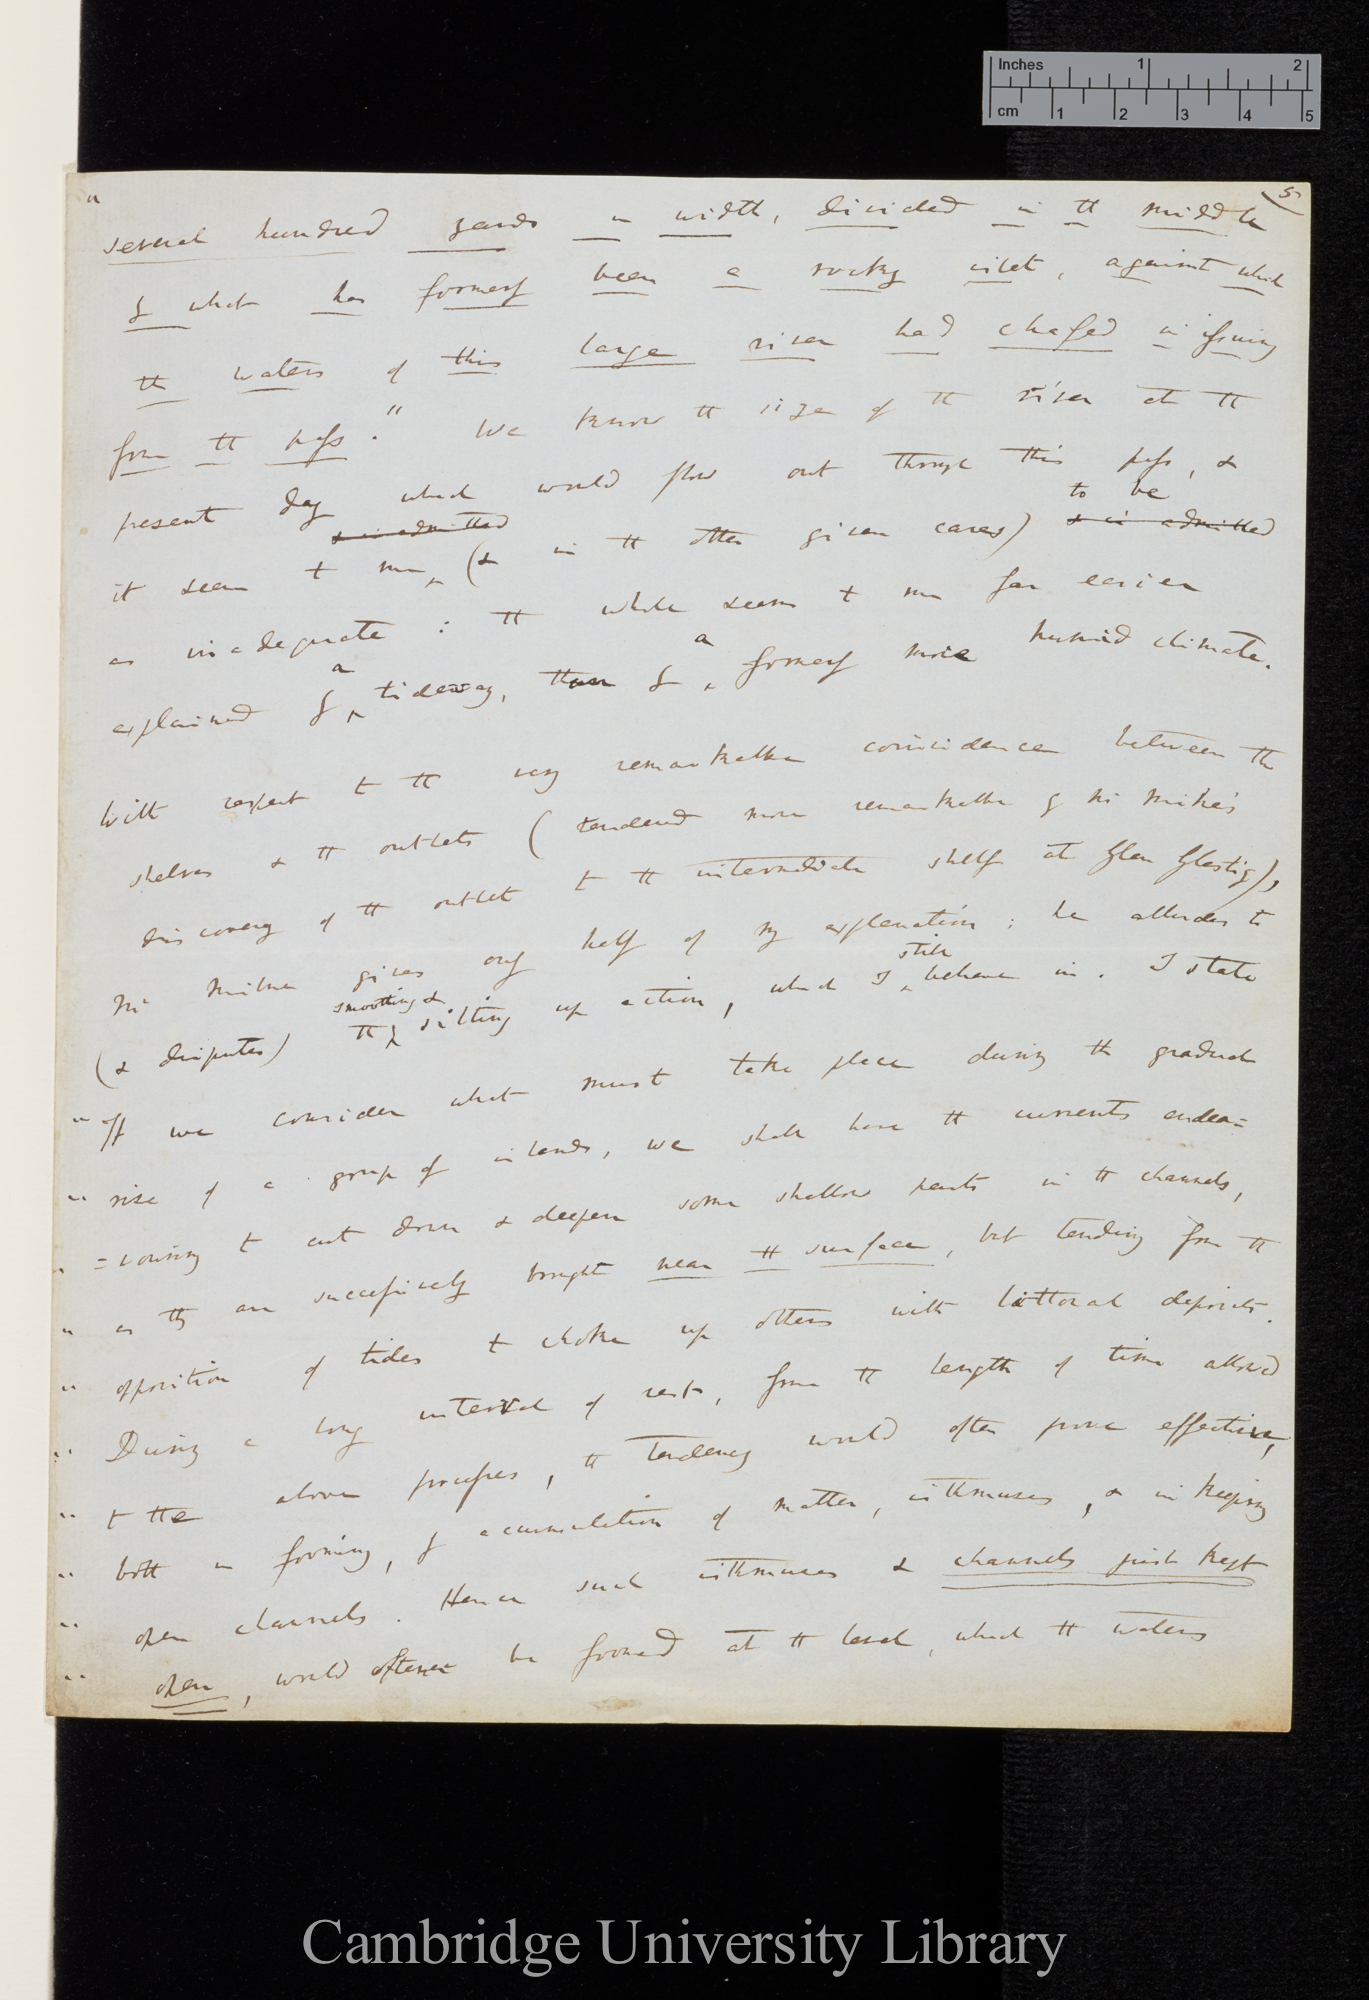 Inches 1 2
cm 1 2 3 4 5
5
" several hundred yards in width, divided in the middle
by what has formerly been a rocky islet, against which
the waters of this large river had chafed in issuing
from the pass." We know the size of the river at the
present day which would flow out through this pass, &
& is admitted to be
it seems to me, (& in the other given cases) & is admitted
as inadequate: the whole seems to me far easier
a a
explained by tideway, than by formerly more humid climate.
With respect to the very remarkable coincidence between the
shelves & the outlets (rendered more remarkable by Mr Milne's
discovery of the outlet to the intermediate shelf at Glen Glastig),
Mr Milne gives only half of my explanation; he alludes to
smoothing & still
(& disputes) the silting up action, which I believe in. I state
" If we consider what must take place during the gradual
" rise of a group of islands, we shall have the currents endea=
" =vouring to cut down & deepen some shallow parts in the channels,
" as they are successively brought near the surface, but tending from the
" opposition of tides to choke up others with littoral deposits.
" During a long interval of rest, from the length of time allowed
" to the above processes, the tendency would often prove effective,
" both in forming, by accumulation of matter, isthmuses, & in keeping
" open channels. Hence such isthmuses & channels just kept
" open, would oftener be formed at the level, which the waters
Cambridge University Library